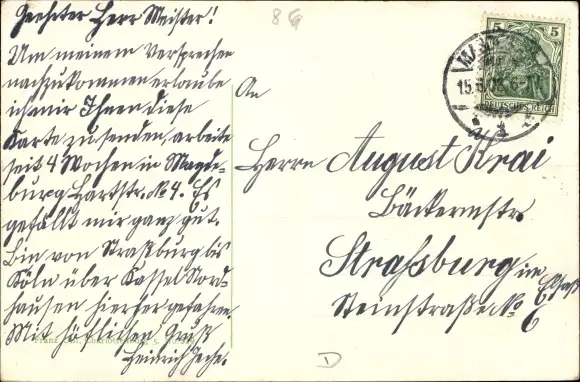 Geehrter Herr Meister!
Um meinem Versprechen
nachzukommen erlaube
ich mir Ihnen diese
Karte zu senden, arbeite
seit 4 Wochen in Magde-
burg Hartstr. No 4. Es
gefällt mir ganz gut.
Bin von Straßburg bis
Köln über Kassel Nord-
hausen hierher gefahren.
Mit höflichen Gruß
Heinrich
86
An
Herrn August Krai
Bäckermstr.
Strassburg im Elsaß
Steinstraße No 6
D
5
5
DEUTSCHES REICH
15.6